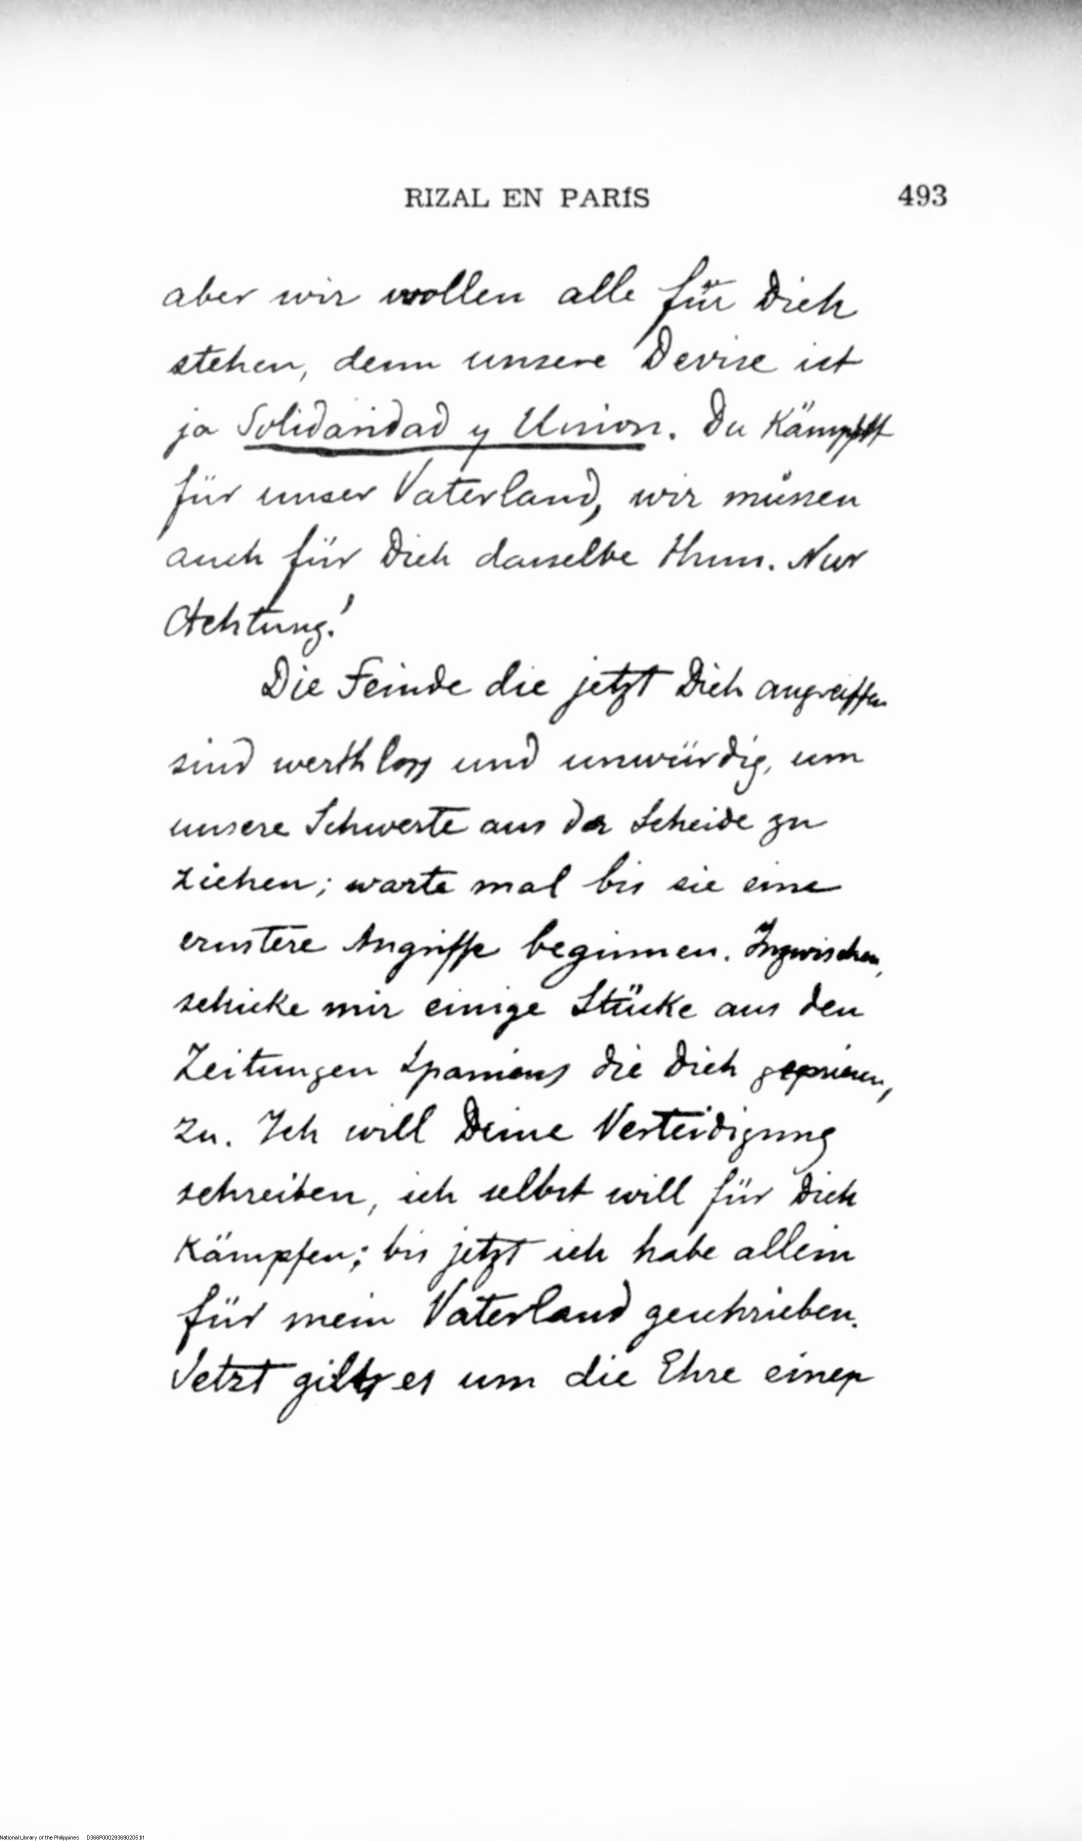 RIZAL EN PARÍS 493
aber wir wollen alle für Dich
stehen, denn unsere Devise ist
ja Solidaridad y Union. Du Kämpfst
für unser Vaterland, wir müssen
auch für Dich dasselbe thun. Nur
Achtung!
Die Feinde die jetzt Dich angreiffen
sind werthloss und unwürdig, um
unsere Schwerte aus der Scheide zu
ziehen; warte mal bis sie eine
ernstere Angriffe beginnen. Inzwischen,
schicke mir einige Stücke aus den
Zeitungen Spaniens die Dich gepriesen,
zu. Ich will Deine Verteidigung
schreiben, ich selbst will für Dich
Kämpfen; bis jetzt ich habe allein
für mein Vaterland geschrieben.
Jetzt gilt es um die Ehre eines
National Library of the Philippines